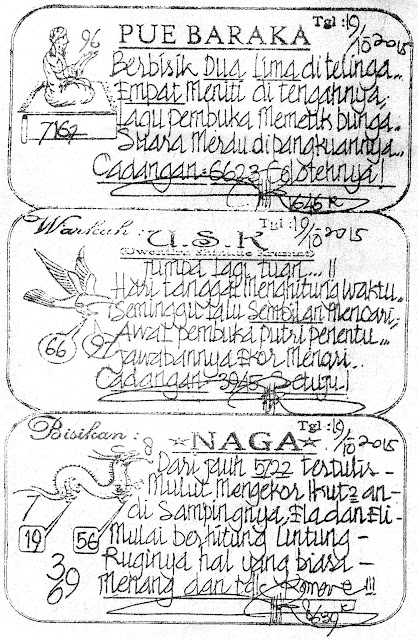 PUE BARAKA
Tgl : 19/10 2015
96
7162
Berbisik Dua Lima di telinga...
Empat Meniti di tengahnya,
Lagu pembuka Memetik bunga..
Suara Merdu dipangkuannya...
Cadangan = 6623 Celotehnya!
1645 K
Warkah :
U.S.K
Tgl : 19/10 2015
Jumpa lagi tuan....!!
Hari tanggal Menghitung waktu..
Seminggu lalu Sembilan Mencari,
Awal pembuka Putri penentu...
Jawabannya Ekor Menari..
Cadangan = 3945 Setuju!
66
97
Bisikan :
NAGA
Tgl : 19/10 2015
8
Dari jauh 5722 tertulis -
Mulut Mengekor Ikut2 an -
di Sampingnya, Ela dan Eli -
Mulai berhitung Untung -
Ruginya hal yang biasa -
Menang dan
7
19
56
3
69